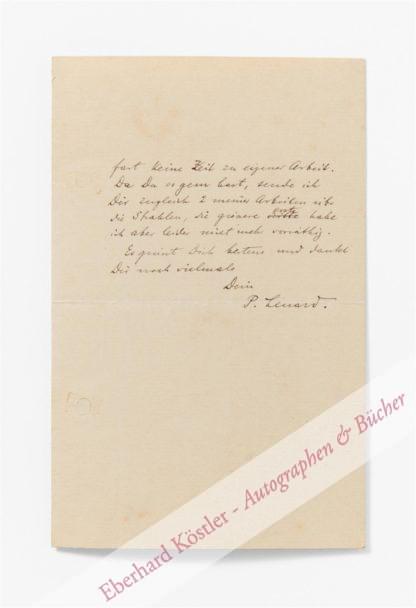 fast keine Zeit zu eigener Arbeit.
Da Du es gern hast, sende ich
Dir zugleich 2 meiner Arbeiten üb.
die Strahlen, die grössere habe
ich aber leider nicht mehr vorräthig.
Es grüsst Dich bestens und dankt
Dir noch vielmals
Dein
P. Lenard.
Eberhard Köstler - Autographen & Bücher